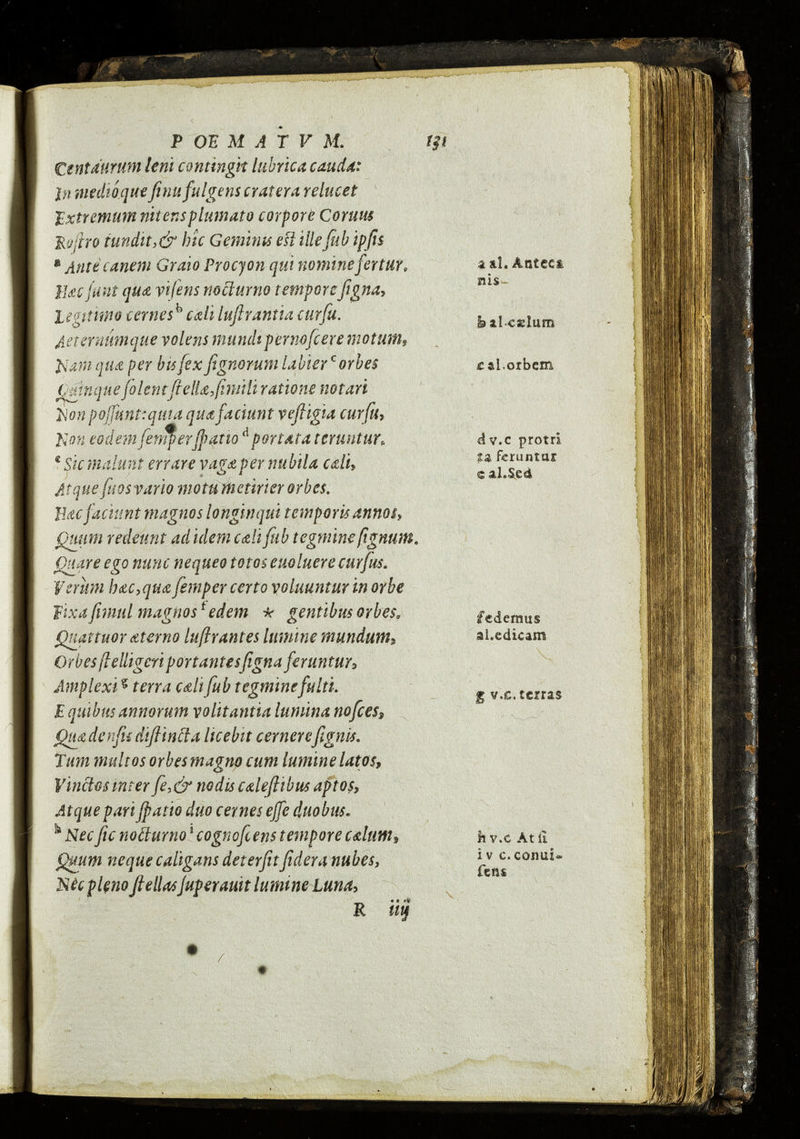 P OE M A T V M. 131
Centaurum leni contingit lubrica cauda:
In medióque sinu fulgens cratera relucet
Extremum nitens plumato corpore Coruus
Rostro tundit, & hîc Geminis est ille sub ipsis
ᵃ Antè canem Graio Procyon qui nomine fertur.
Hæc sunt quæ visens nocturno tempore signa,
Legitimo cernes ᵇ cæli lustrantia cursu.
Aeternúmque volens mundi pernoscere motum,
Nam quæ per bis sex signorum labier ᶜ orbes
Quinque solent stellæ, simili ratione notari
Non possunt: quia quæ faciunt vestigia cursu,
Non eodem semper spatio ᵈ portata teruntur.
ᵉ Sic malunt errare vagæ per nubila cæli,
Atque suos vario motu metirier orbes.
Hæc faciunt magnos longinqui temporis annos,
Quum redeunt ad idem cæli sub tegmine signum.
Quare ego nunc nequeo totos euoluere cursus.
Verùm hæc, quæ semper certo voluuntur in orbe
Fixa simul magnos ᶠ edem * gentibus orbes.
Quattuor æterno lustrantes lumine mundum,
Orbes stelligeri portantes signa feruntur,
Amplexi ᵍ terra cæli sub tegmine fulti.
E quibus annorum volitantia lumina nosces,
Quæ densis distincta licebit cernere signis.
Tum multos orbes magno cum lumine latos,
Vinctos inter se, & nodis cælestibus aptos,
Atque pari spatio duo cernes esse duobus.
ʰ Nec sic nocturno ⁱ cognoscens tempore cælum,
Quum neque caligans detersit sidera nubes,
Nec pleno stellas superauit lumine Luna,
R iiij
a al. Antecanis-
b al. cælum
c al. orbem
d v.c protrita feruntur
e al. Sed
f edemus al. edicam
g v.c. terras
h v.c At si
i v c. conuisens